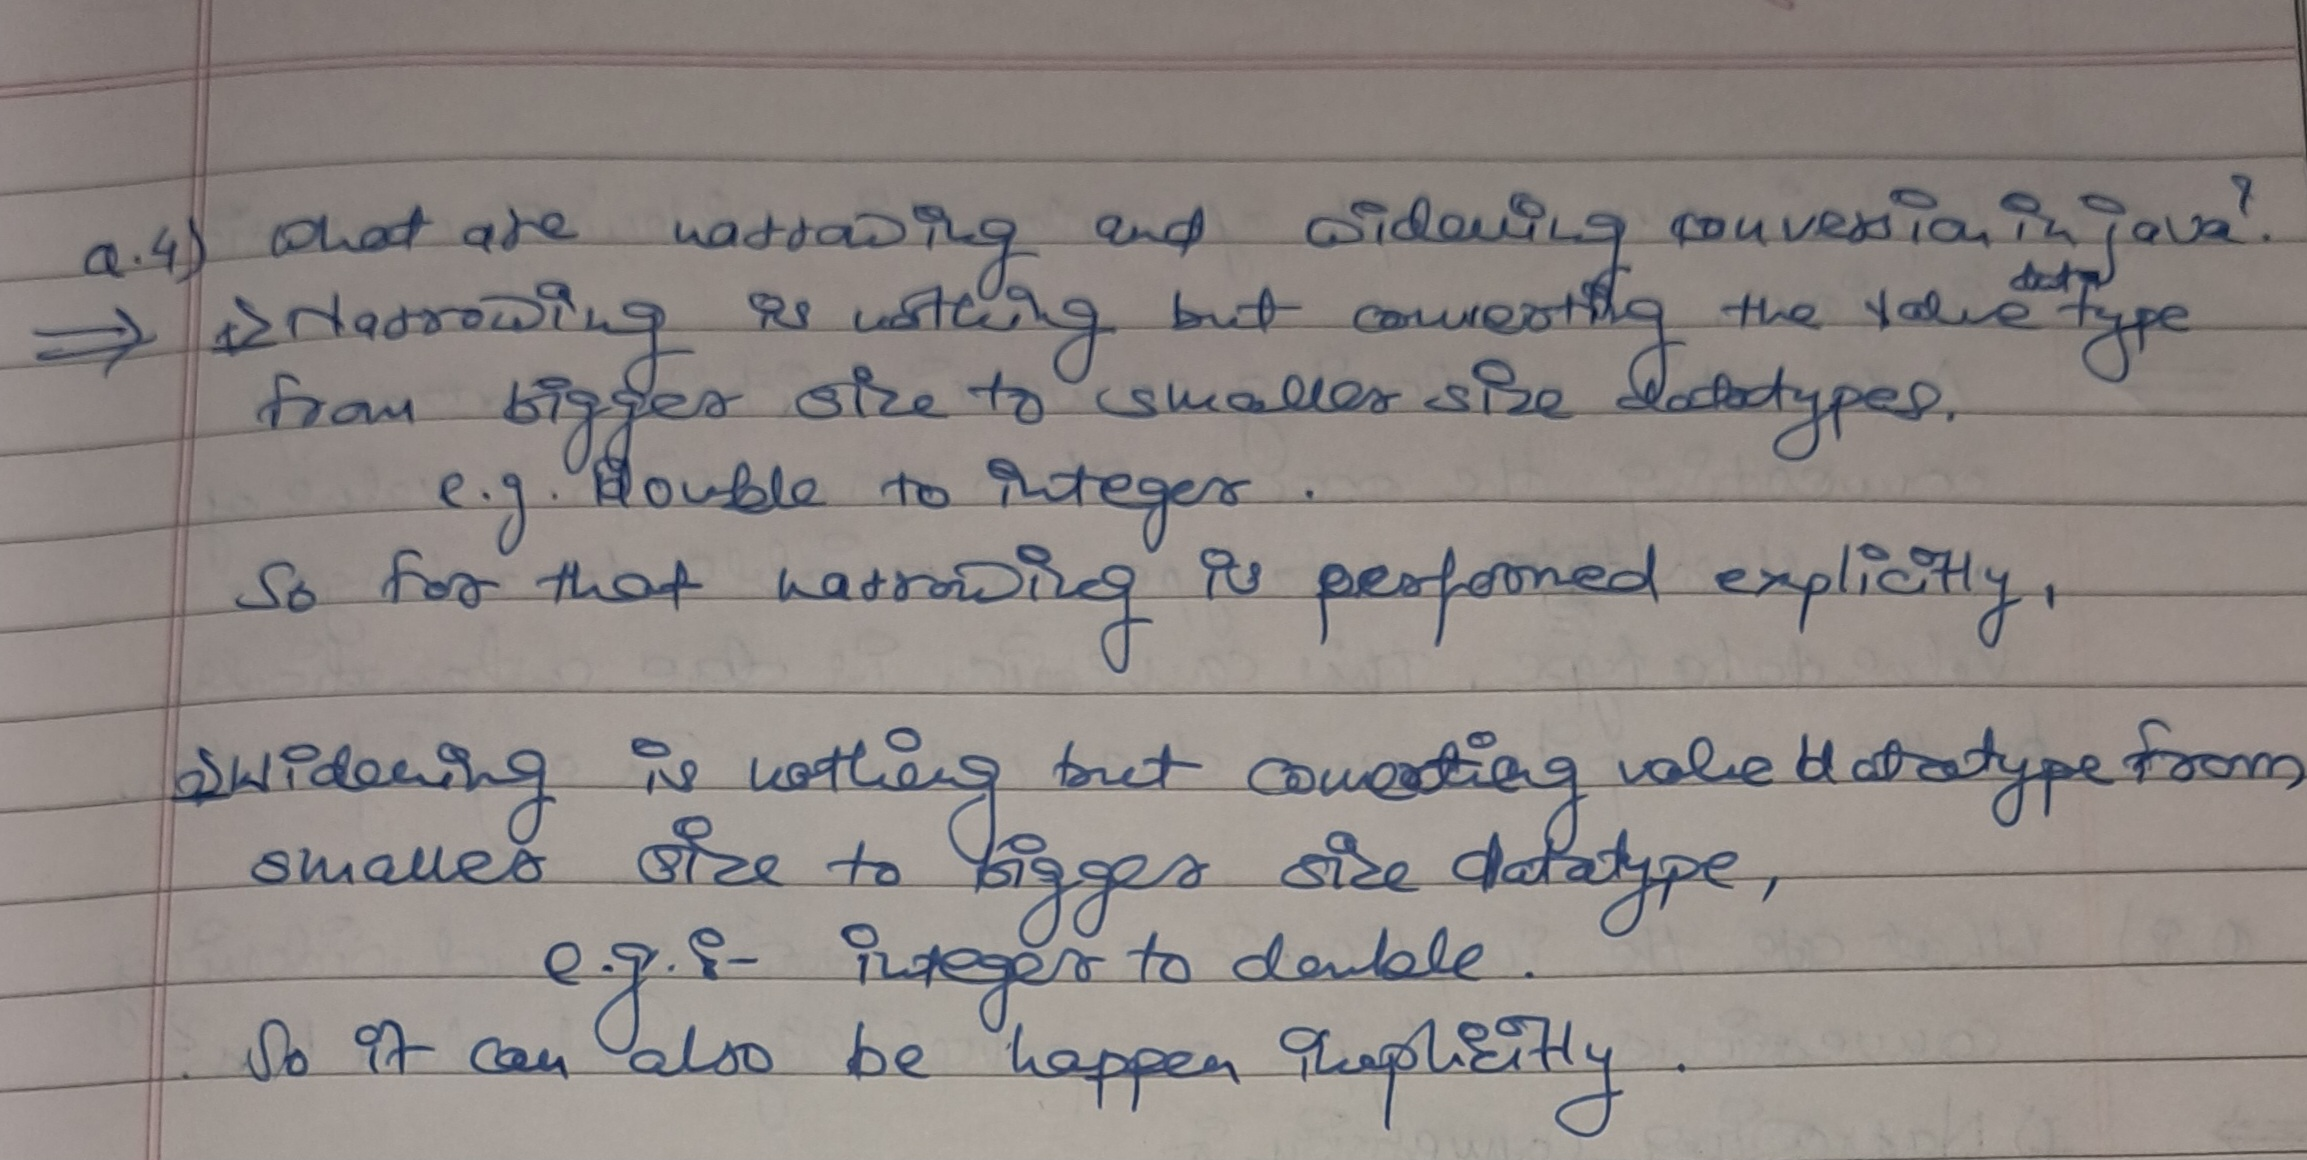 Q.4) What are narrowing and widening conversion in java?
⇒ 1) Narrowing is nothing but converting the value data type
from bigger size to smaller size datatypes.
e.g. Double to integer.
So for that narrowing is performed explicitly,
2) Widening is nothing but converting value datatype from
smaller size to bigger size datatype,
e.g.:- integer to double.
So it can also be happen implicitly.